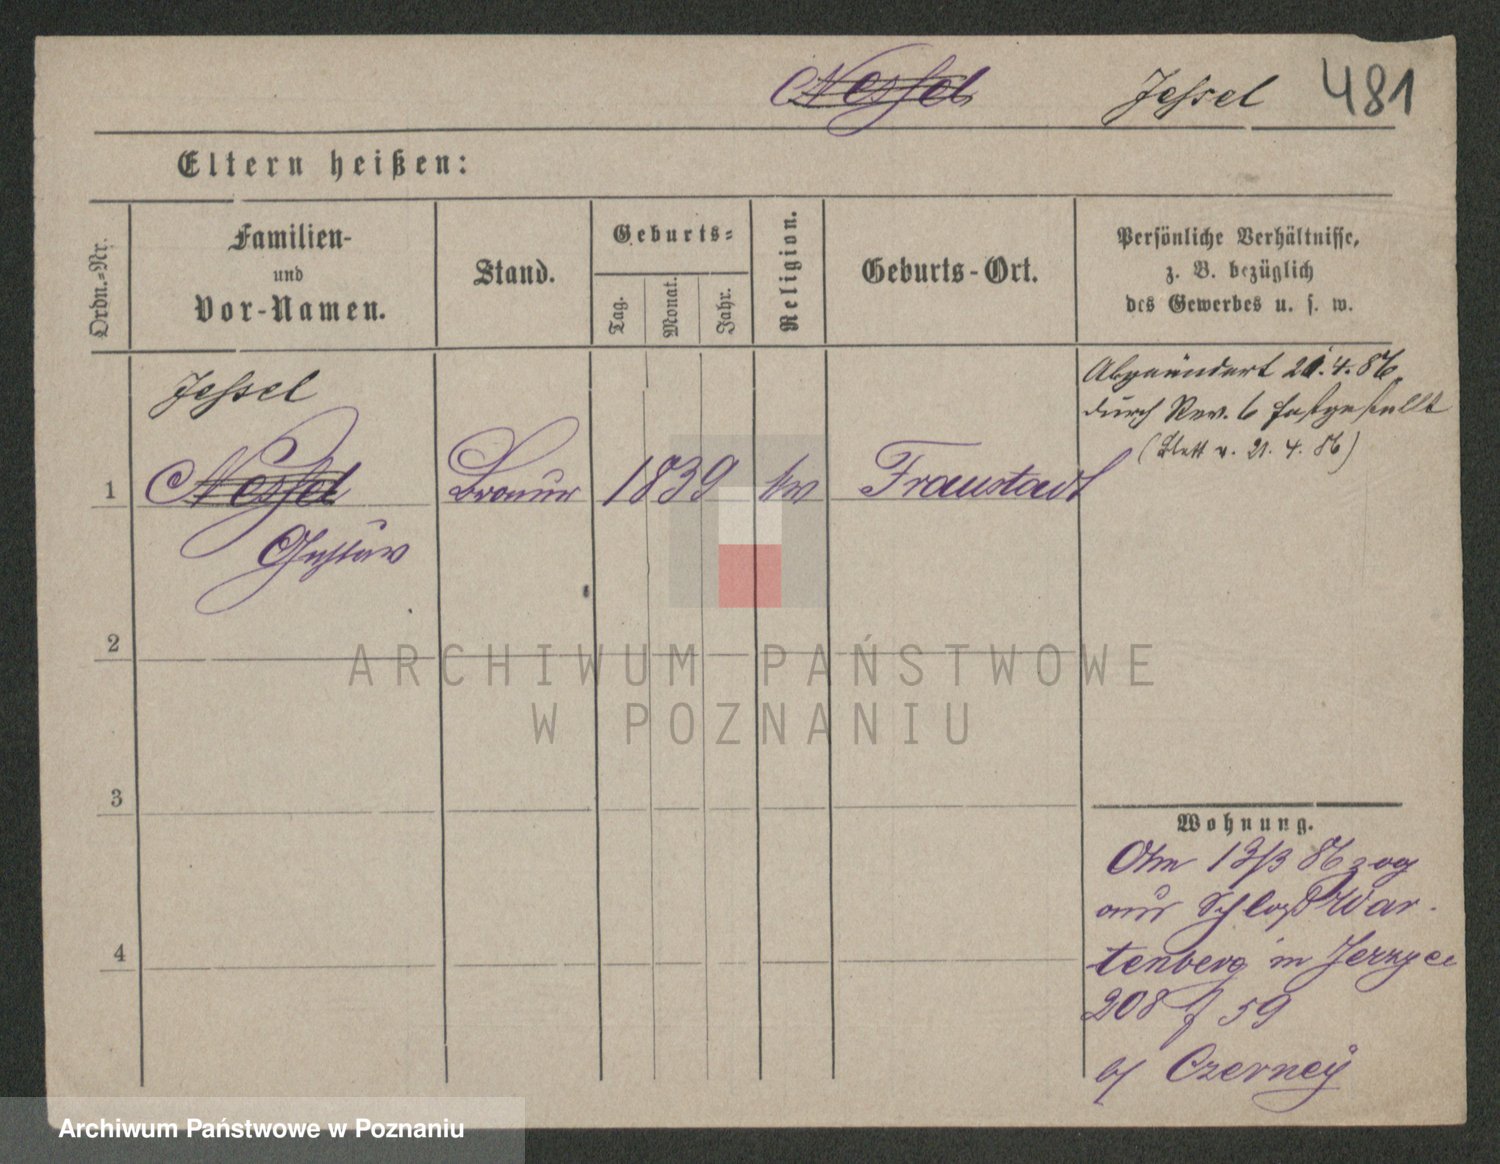 Nessel Jessel 481
Eltern heißen:
Ordn.-Nr.
Familien-
und
Vor-Namen.
Stand.
Geburts-
Tag.
Monat.
Jahr.
Religion.
Geburts-Ort.
Persönliche Verhältnisse,
z. B. bezüglich
des Gewerbes u. s. w.
Jessel
1 Nessel Brauer 1839 Fraustadt
Gustav
Abgeändert 21.4.86
durch Rev. 6 festgestellt
(Blatt v. 21. 4. 86)
2
3
4
Wohnung.
Am 13/3 86 zog
aus Schloß War-
tenberg in Jerzyce
208 f 59
b/ Czerney
ARCHIWUM PAŃSTWOWE
W POZNANIU
Archiwum Państwowe w Poznaniu